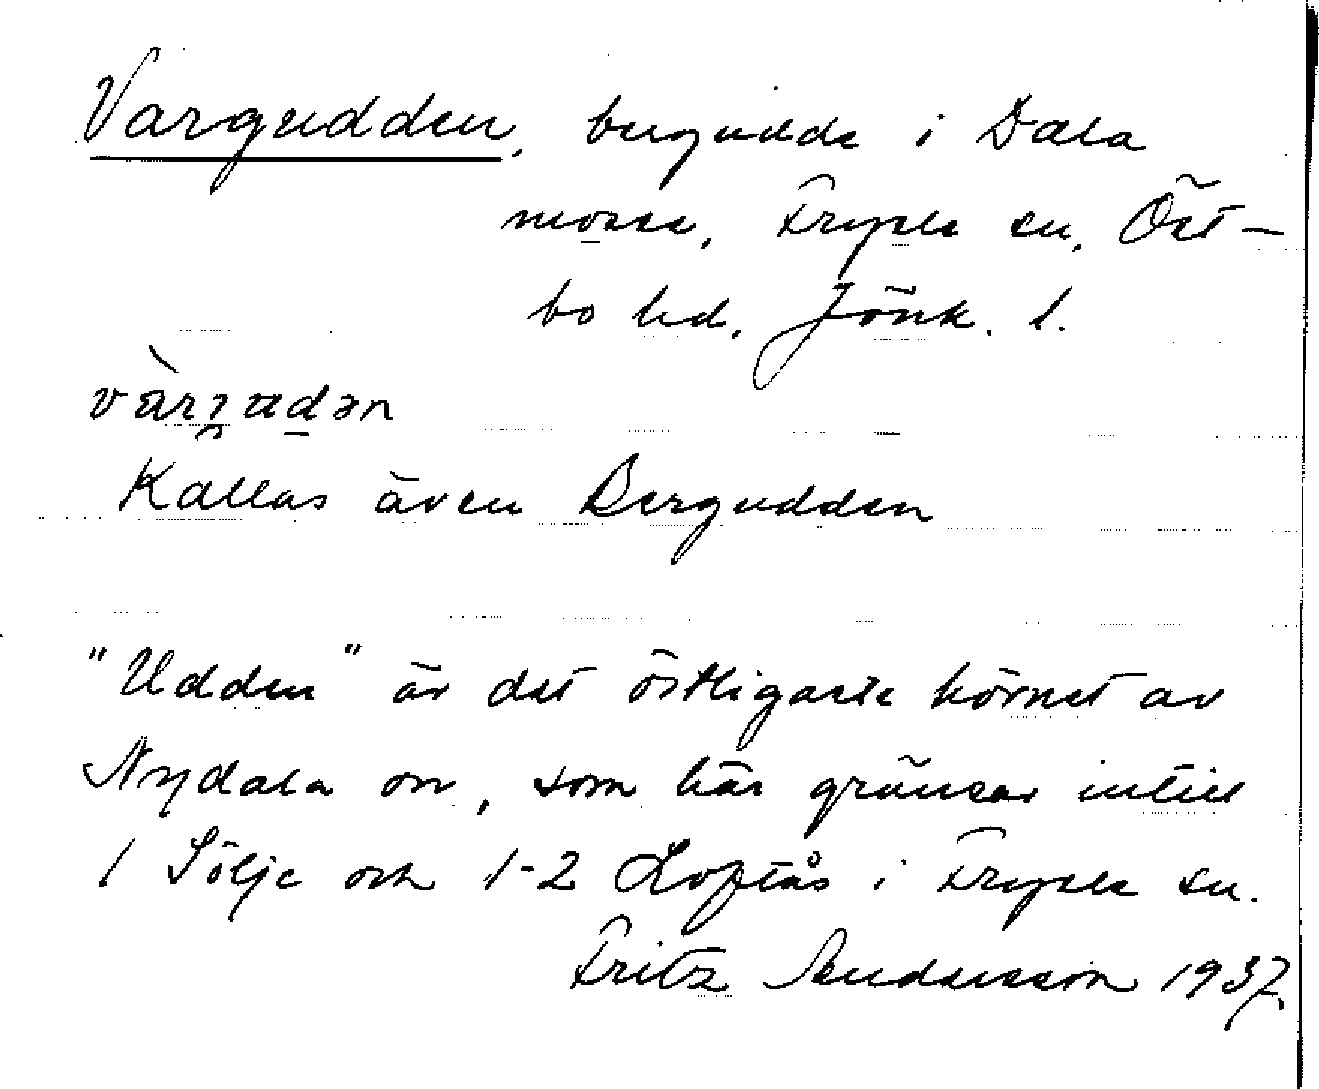 Vargudden, bergudde i Dala
mosse, Fryele sn, Öst-
bo hd, Jönk. l.
vàrgudən
Kallas även Bergudden
"Udden" är det östligaste hörnet av
Nydala sn, som här gränsar intill
1 Sölje och 1-2 Loftås i Fryele sn.
Fritz Andersson 1937.